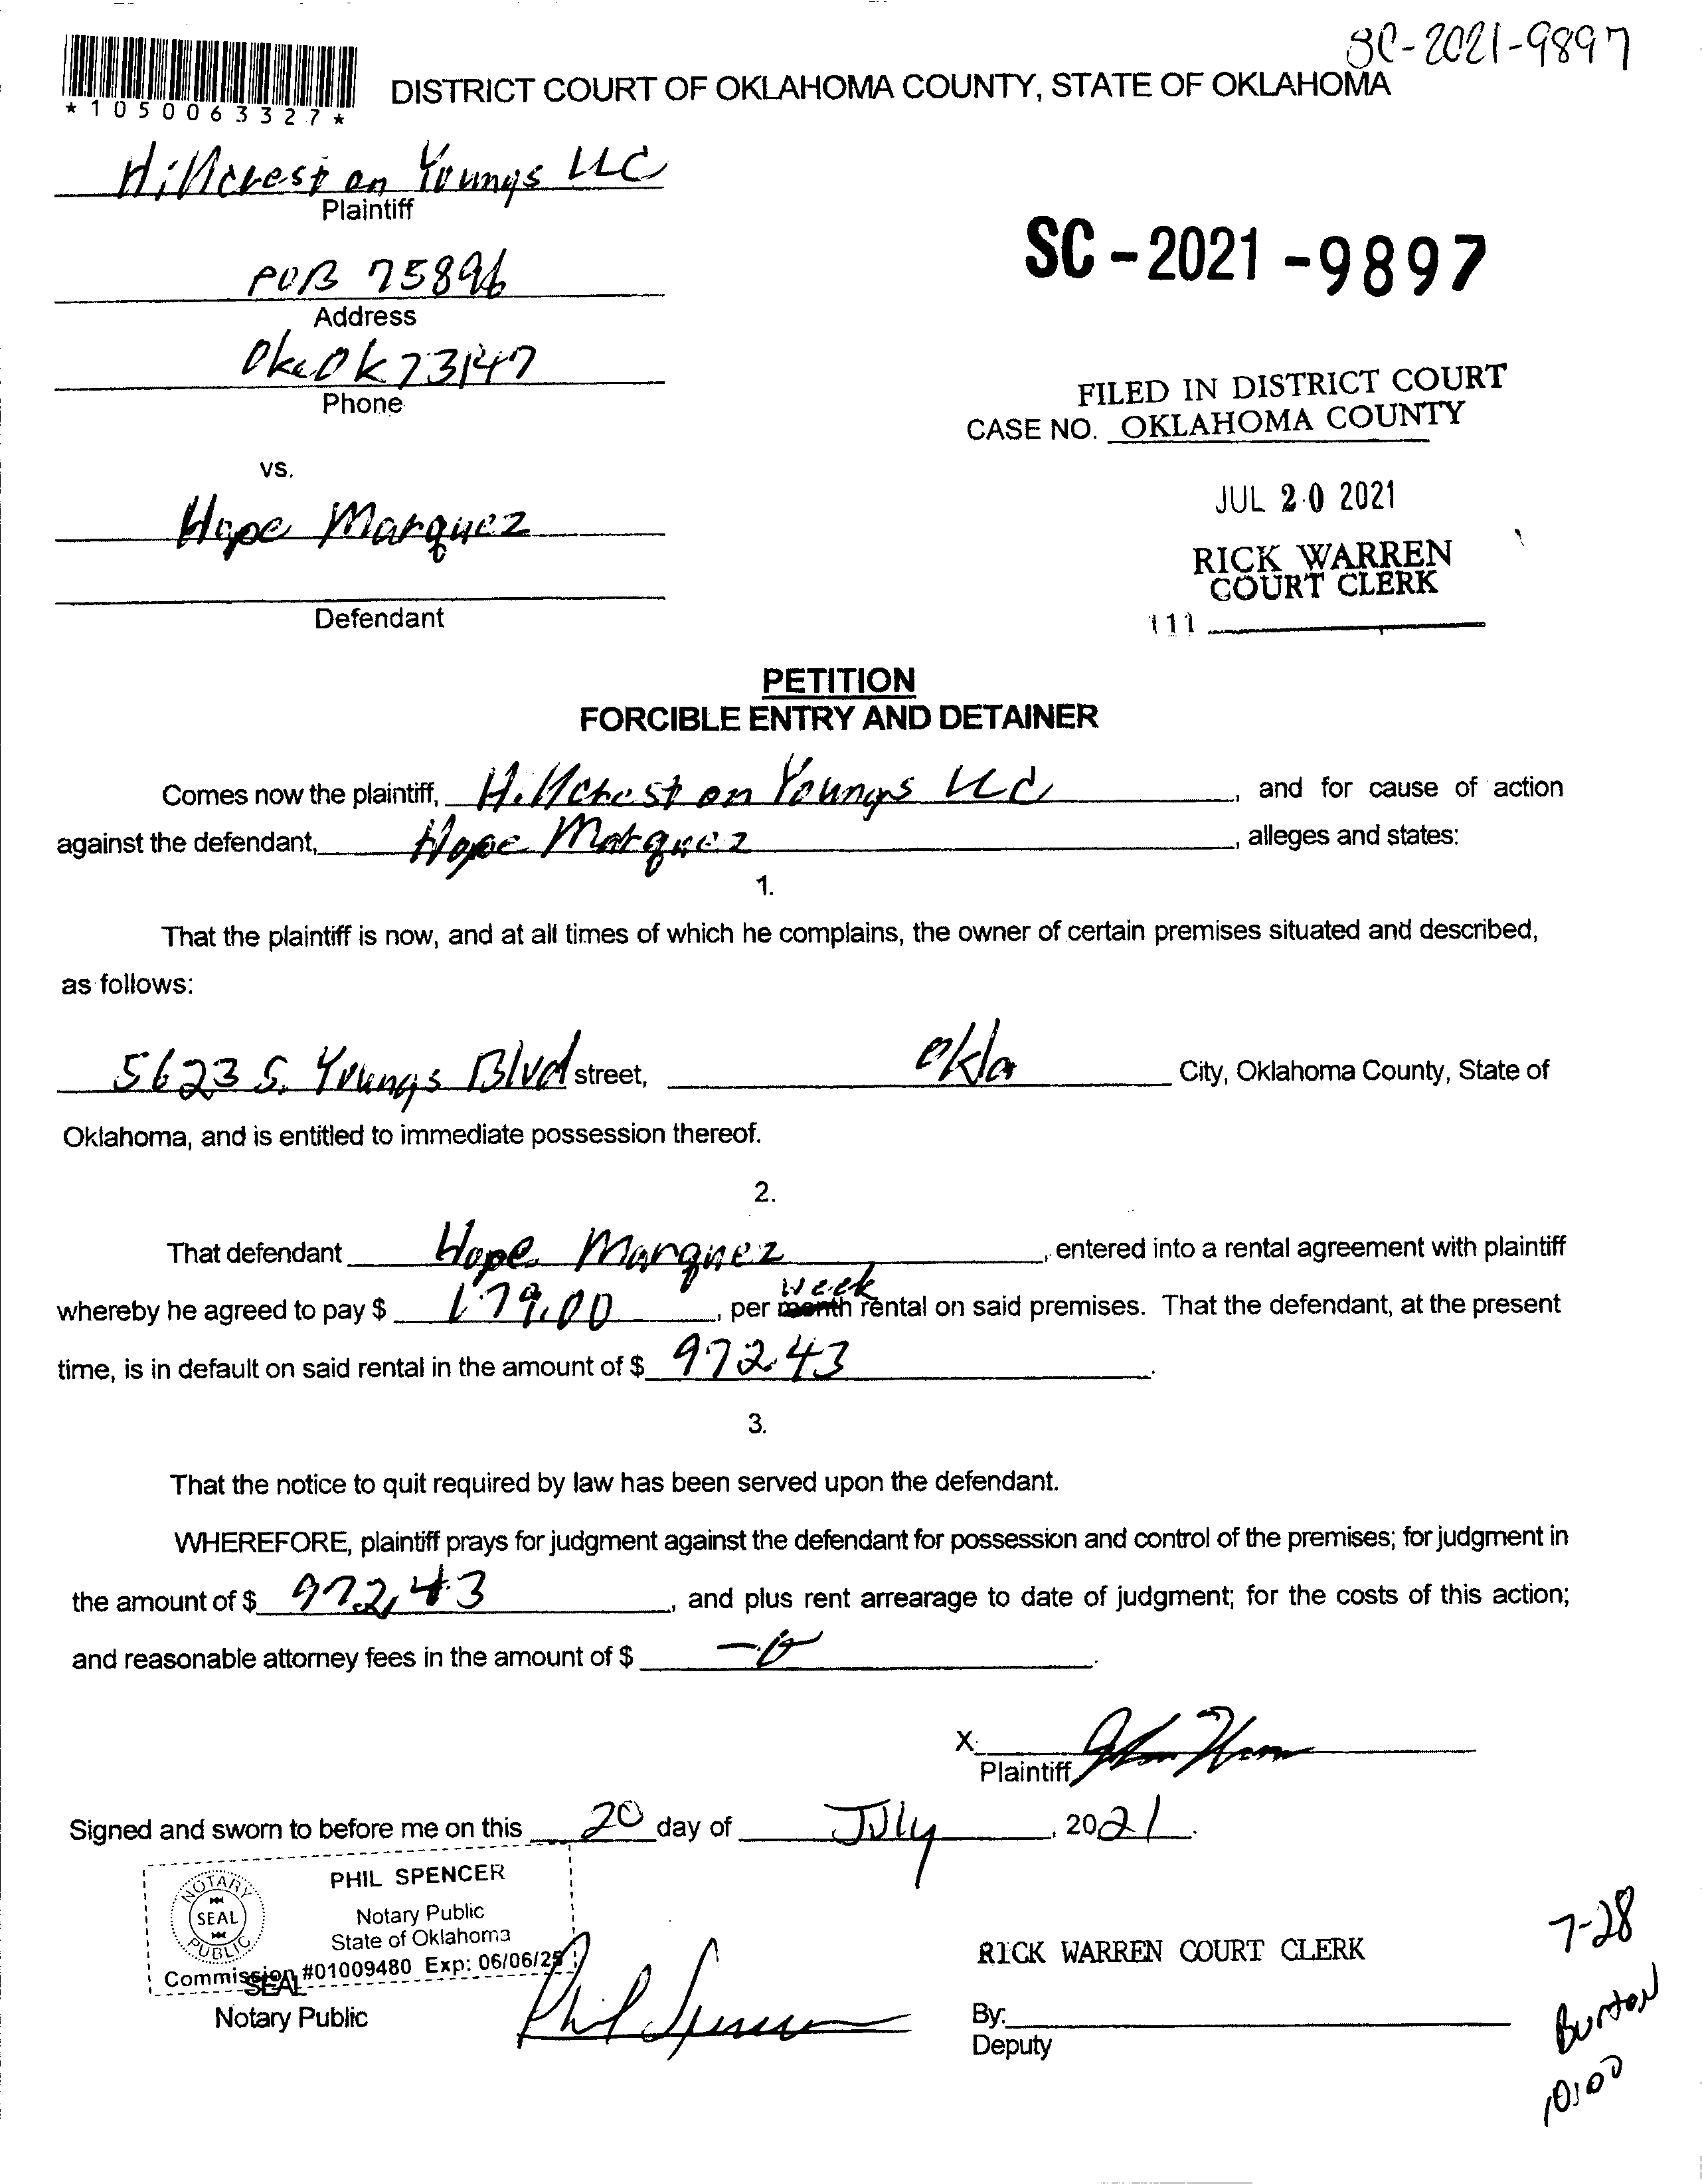 SC-2021-9897
*1050063327*
DISTRICT COURT OF OKLAHOMA COUNTY, STATE OF OKLAHOMA
Hillcrest on Youngs LLC
Plaintiff
POB 75896
Address
Okc Ok 73147
Phone
SC-2021-9897
FILED IN DISTRICT COURT
CASE NO. OKLAHOMA COUNTY
vs.
JUL 20 2021
Hope Marquez
RICK WARREN
COURT CLERK
Defendant
111
PETITION
FORCIBLE ENTRY AND DETAINER
Comes now the plaintiff, Hillcrest on Youngs LLC, and for cause of action
against the defendant, Hope Marquez, alleges and states:
1.
That the plaintiff is now, and at all times of which he complains, the owner of certain premises situated and described,
as follows:
5623 S. Youngs Blvd street, Okla City, Oklahoma County, State of
Oklahoma, and is entitled to immediate possession thereof.
2.
That defendant Hope Marquez, entered into a rental agreement with plaintiff
week
whereby he agreed to pay $ 179.00, per month rental on said premises. That the defendant, at the present
time, is in default on said rental in the amount of $ 972.43.
3.
That the notice to quit required by law has been served upon the defendant.
WHEREFORE, plaintiff prays for judgment against the defendant for possession and control of the premises; for judgment in
the amount of $ 972.43, and plus rent arrearage to date of judgment; for the costs of this action;
and reasonable attorney fees in the amount of $ -0.
X
Plaintiff
Signed and sworn to before me on this 20 day of July, 2021.
PHIL SPENCER
NOTARY
SEAL
PUBLIC
Notary Public
State of Oklahoma
Commission #01009480 Exp: 06/06/25
SEAL
Notary Public
Phil Spencer
RICK WARREN COURT CLERK
By:
Deputy
7-28
Burton
10:00